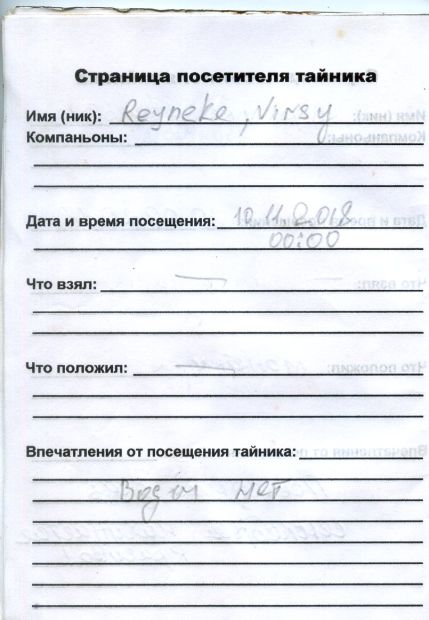 Страница посетителя тайника
Имя (ник): Reyneke, Virsy
Компаньоны:
Дата и время посещения: 10.11.2018
00:00
Что взял: —
Что положил: —
Впечатления от посещения тайника:
Воды нет